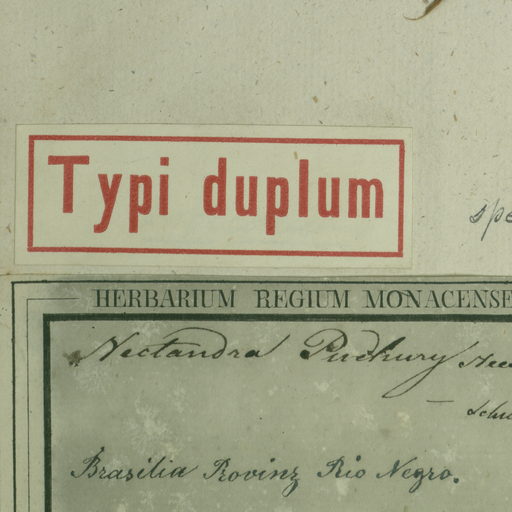 Typi duplum
HERBARIUM REGIUM MONACENSE
Nectandra Puchury
Brasilia Provinz Rio Negro.